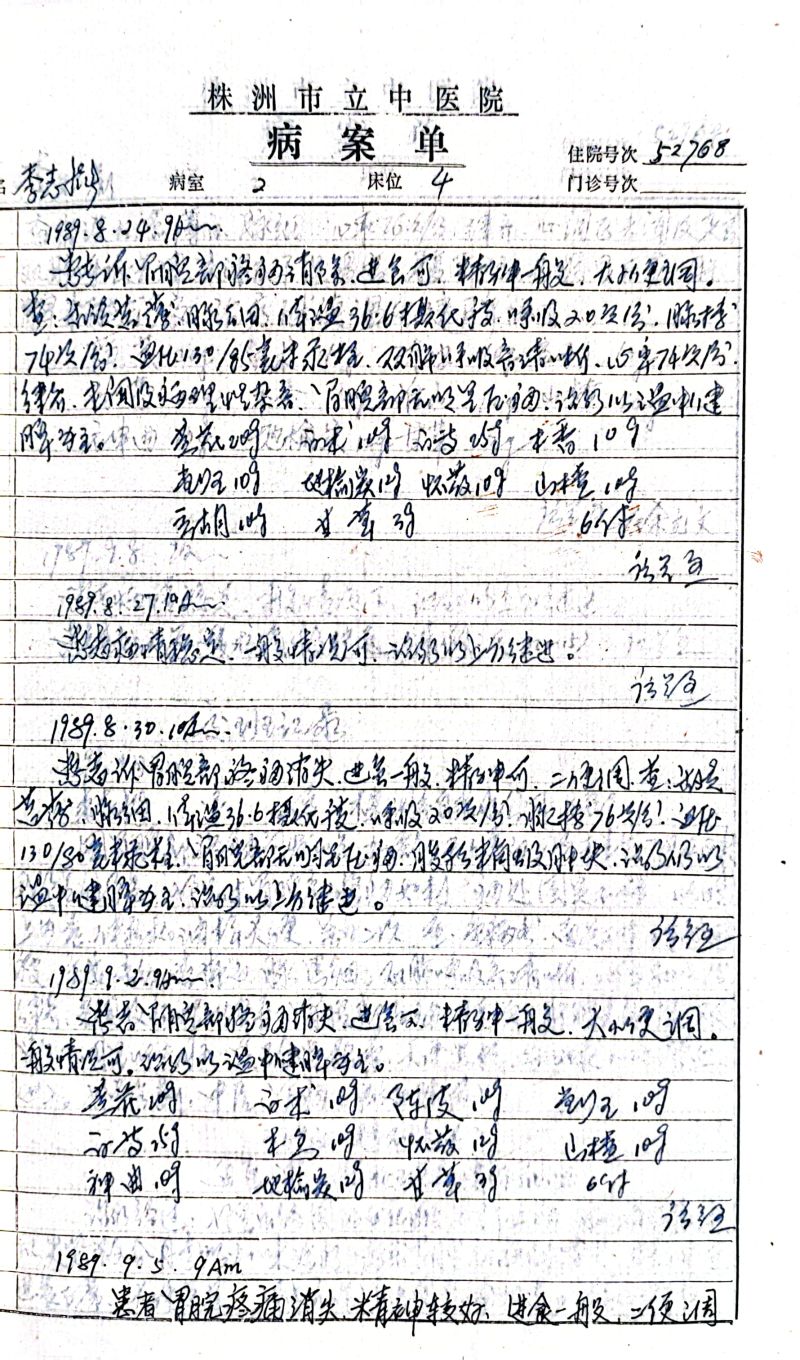 株洲市立中医院
病案单
住院号次 52768
名 李志 病室 2 床位 4 门诊号次
1989.8.24.9Am
患者诉胃脘部疼痛消除，进食可，精神一般，大小便调。
查：舌淡苔薄，脉细，体温36.6摄氏度，呼吸20次/分，脉搏
74次/分，血压130/85毫米汞柱，双肺呼吸音清晰，心率74次/分，
律齐，未闻及病理性杂音，胃脘部无明显压痛，治疗以温中健
脾为主。 黄芪20g 白术10g 白芍25g 木香10g
10g 地榆炭12g 怀 10g 山楂10g
元胡10g 甘草3g 6付
1989.8.27.10Am
患者病情稳定，一般情况可，治疗以上方继进。
1989.8.30.10Am
患者诉胃脘部疼痛消失，进食一般，精神可，二便调，查：舌淡
苔薄，脉细，体温36.6摄氏度，呼吸20次/分，脉搏76次/分，血压
130/80毫米汞柱，胃脘部无明显压痛，治疗仍以
温中健脾为主，治疗以上方继进。
1989.9.2.9Am
患者胃脘部疼痛消失，进食可，精神一般，大小便调。
一般情况可。治疗以温中健脾为主。
黄芪20g 白术10g 陈皮10g 10g
白芍25g 木香10g 怀 12g 山楂10g
神曲10g 地榆炭12g 甘草3g 6付
1989.9.5.9Am
患者胃脘疼痛消失，精神较好，进食一般，二便调